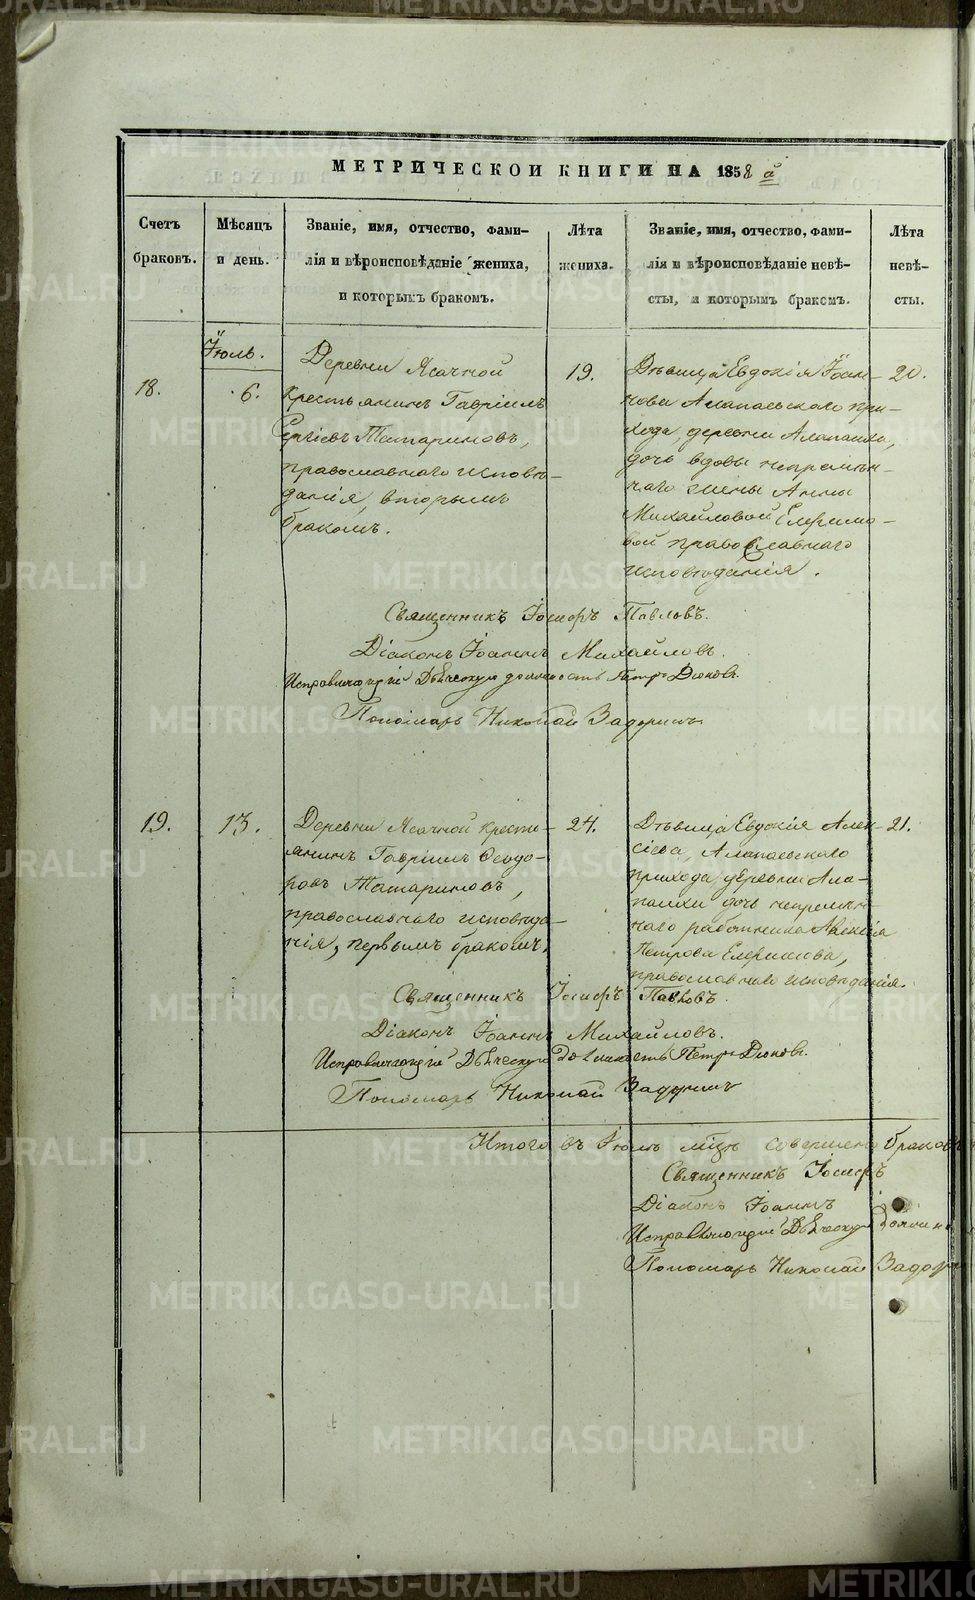 МЕТРИЧЕСКОЙ КНИГИ НА 1858 й
Счетъ браковъ.
Мѣсяцъ и день.
Званіе, имя, отчество, фами-
лія и вѣроисповѣданіе жениха,
и которымъ бракомъ.
Лѣта жениха.
Званіе, имя, отчество, фами-
лія и вѣроисповѣданіе невѣ-
сты, и которымъ бракомъ.
Лѣта невѣ-
сты.
Іюль.
18.
6.
Деревни Ясачной
крестьянинъ Гавріилъ
Сергіевъ Татариновъ,
православнаго исповѣ-
данія, вторымъ
бракомъ.
19.
Дѣвица Евдокія Іоан-
нова Алапаевскаго при-
хода, деревни Алапаихи,
дочь вдовы непремѣн-
наго жены Анны
Михайловой
православнаго
исповѣданія.
20.
Священникъ Іосифъ Павловъ.
Діаконъ Іоаннъ Михайловъ.
Исправляющій Дьяческую должность Петръ Дюковъ.
Пономарь Николай Задоринъ
19.
13.
Деревни Ясачной кресть-
янинъ Гавріилъ Ѳеодо-
ровъ Татариновъ,
православнаго исповѣда-
нія, первымъ бракомъ.
24.
Дѣвица Евдокія Алек-
сіева, Алапаевскаго
прихода, деревни Ала-
паихи дочь непремѣн-
наго работника Алексія
Петрова
православнаго исповѣданія.
21.
Священникъ Іосифъ Павловъ.
Діаконъ Іоаннъ Михайловъ.
Исправляющій Дьяческую должность Петръ Дюковъ.
Пономарь Николай Задоринъ
Итого въ Іюлѣ мцѣ совершено браковъ
Священникъ Іосифъ
Діаконъ Іоаннъ
Исправляющій Дьяческую
Пономарь Николай
METRIKI.GASO-URAL.RU